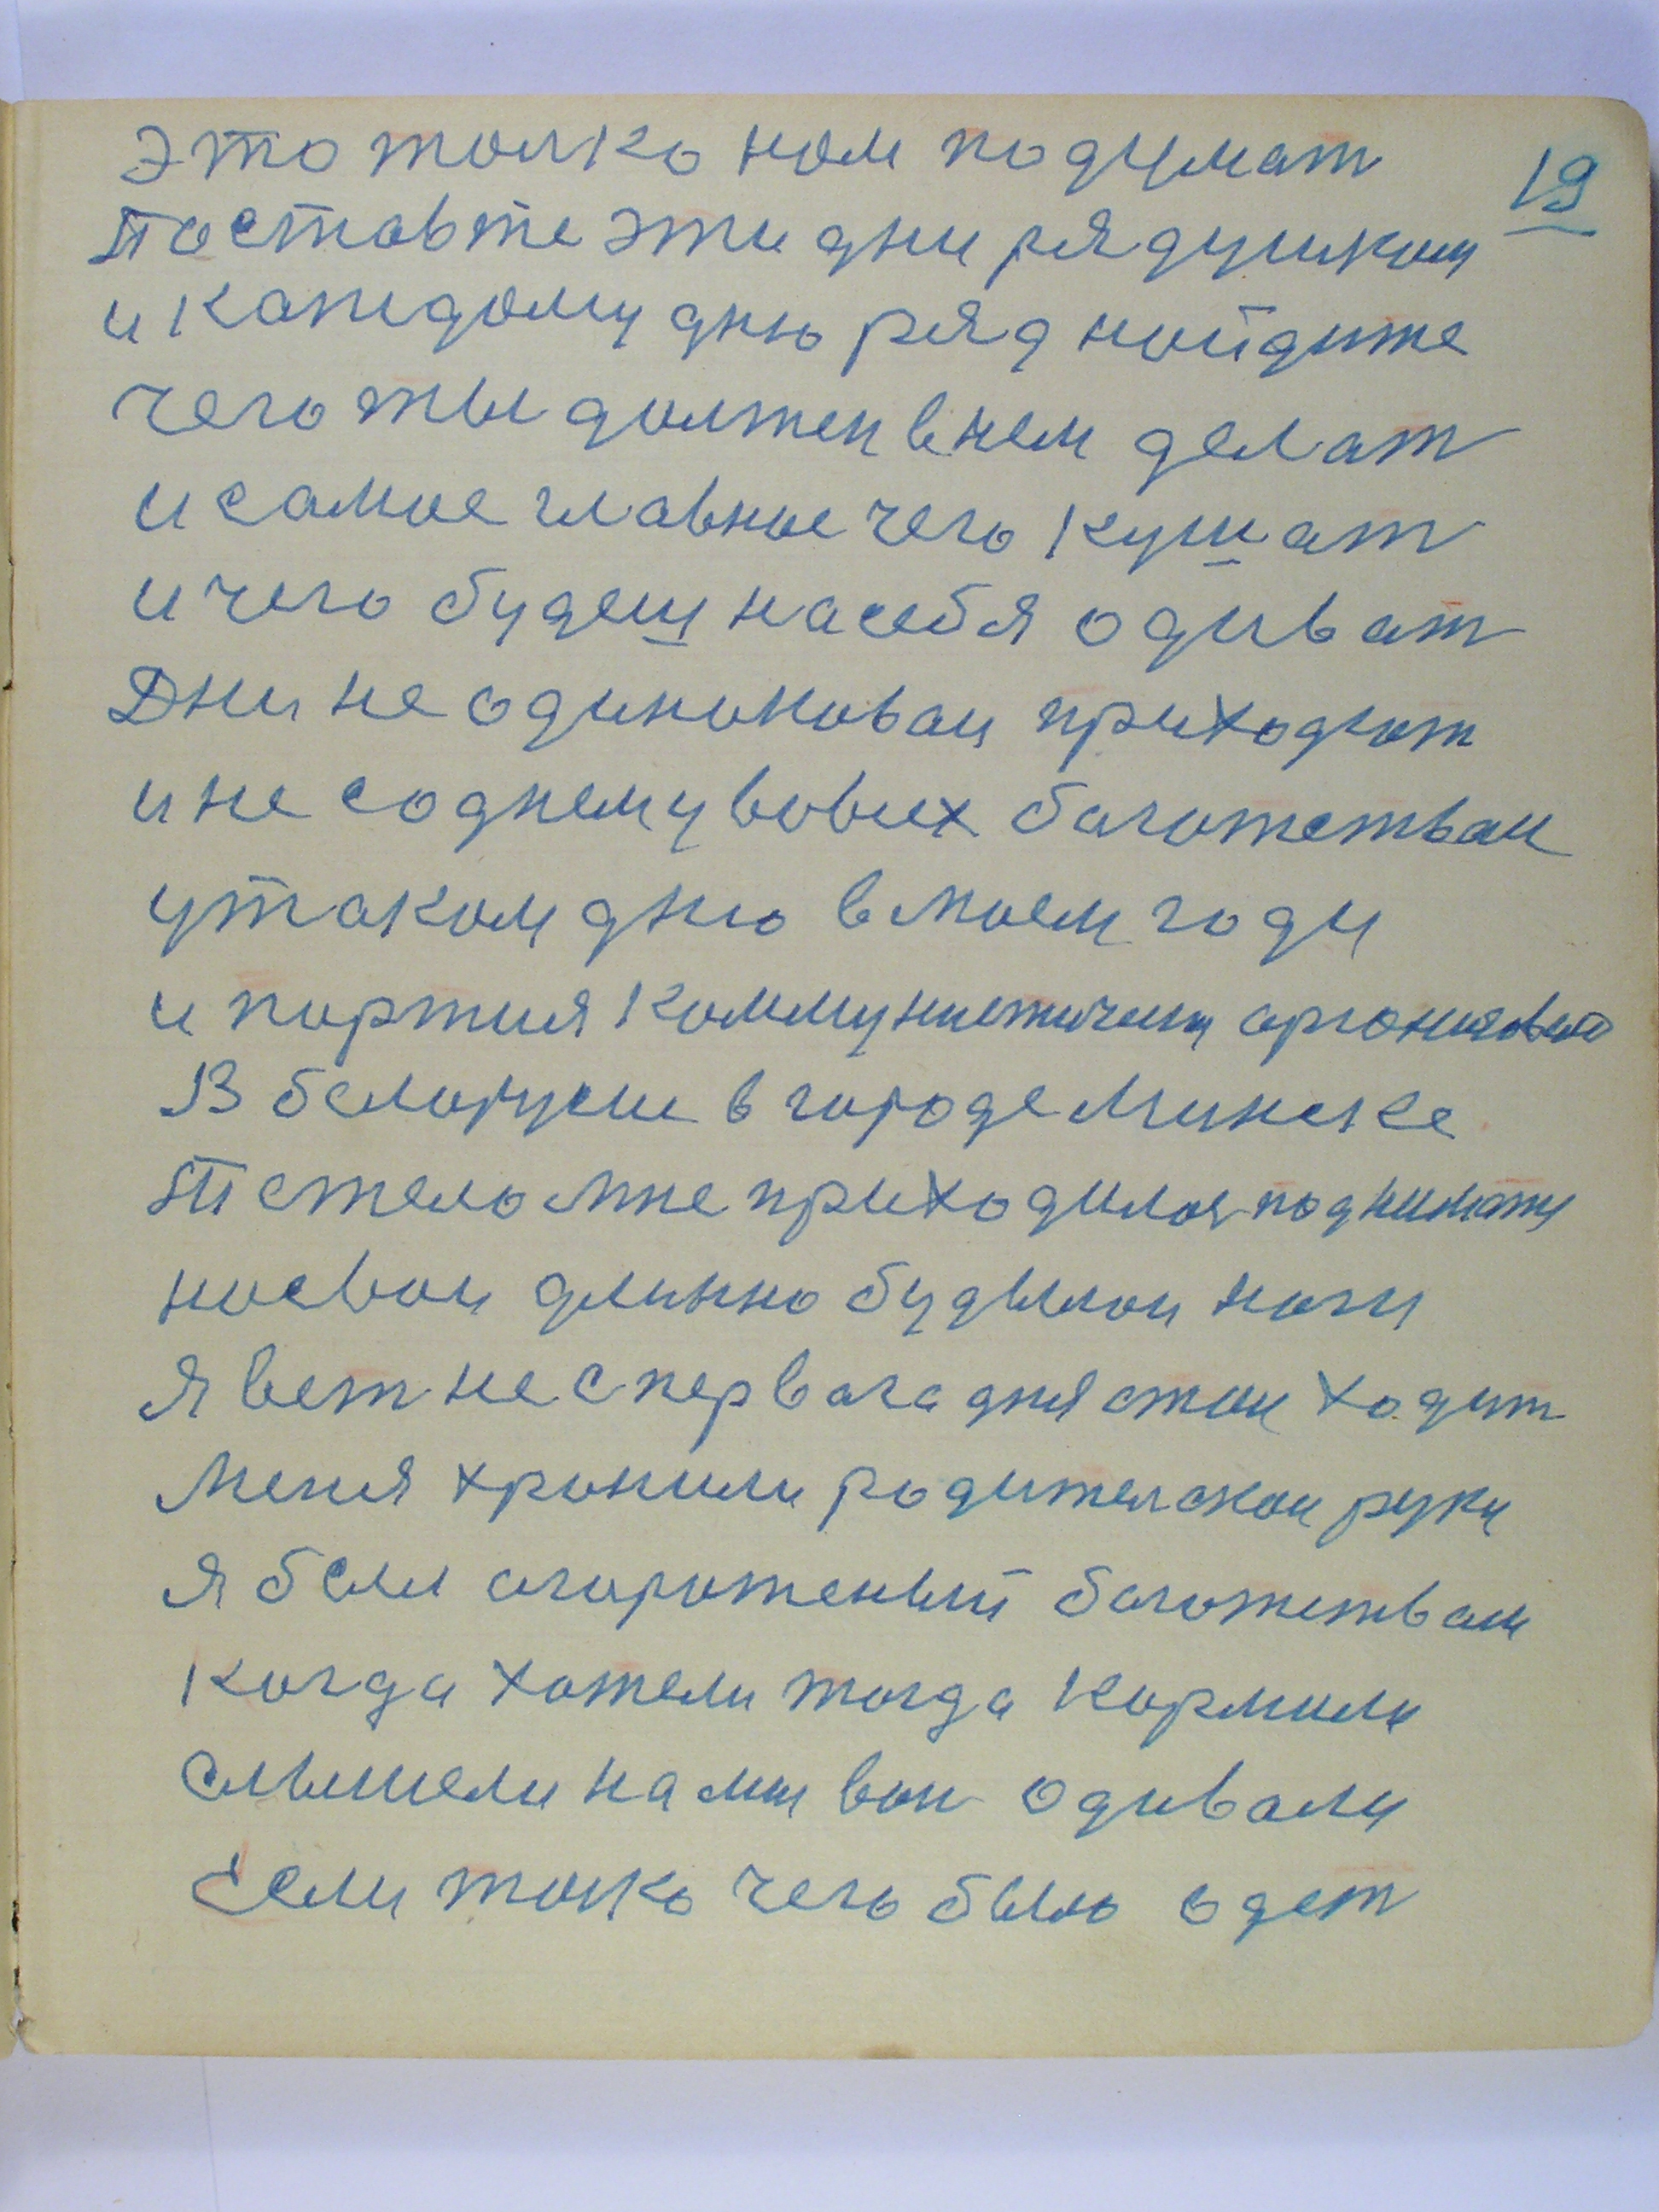 19
это толко нам подумат
поставте эти дни рядушкам
и каждому дню ряд найдите
чего ты должен в нем делат
и самое главное чего кушат
и чего будеш на себя одиват
Дни не одинаковаи приходют
и не соднем у вовсех багатствам
у таком дню в моем году
и партия Коммунистичису
В белоруси в городе Минске
Тяжело мне приходилос поднимат
на сваи длинно будылаи ноги
Я вет не с первага дня стал ходит
Меня хронили родителскаи руки
я бэл агароженый багатствам
когда хатели тогда кормили
с мыслели на мня вон одивали
Если толко чего было одет